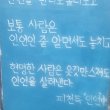 보통 사람은
인연인 줄 알면서도 놓치고
현명한 사람은 옷깃만 스쳐도
인연을 살려낸다
피천득 "인연"